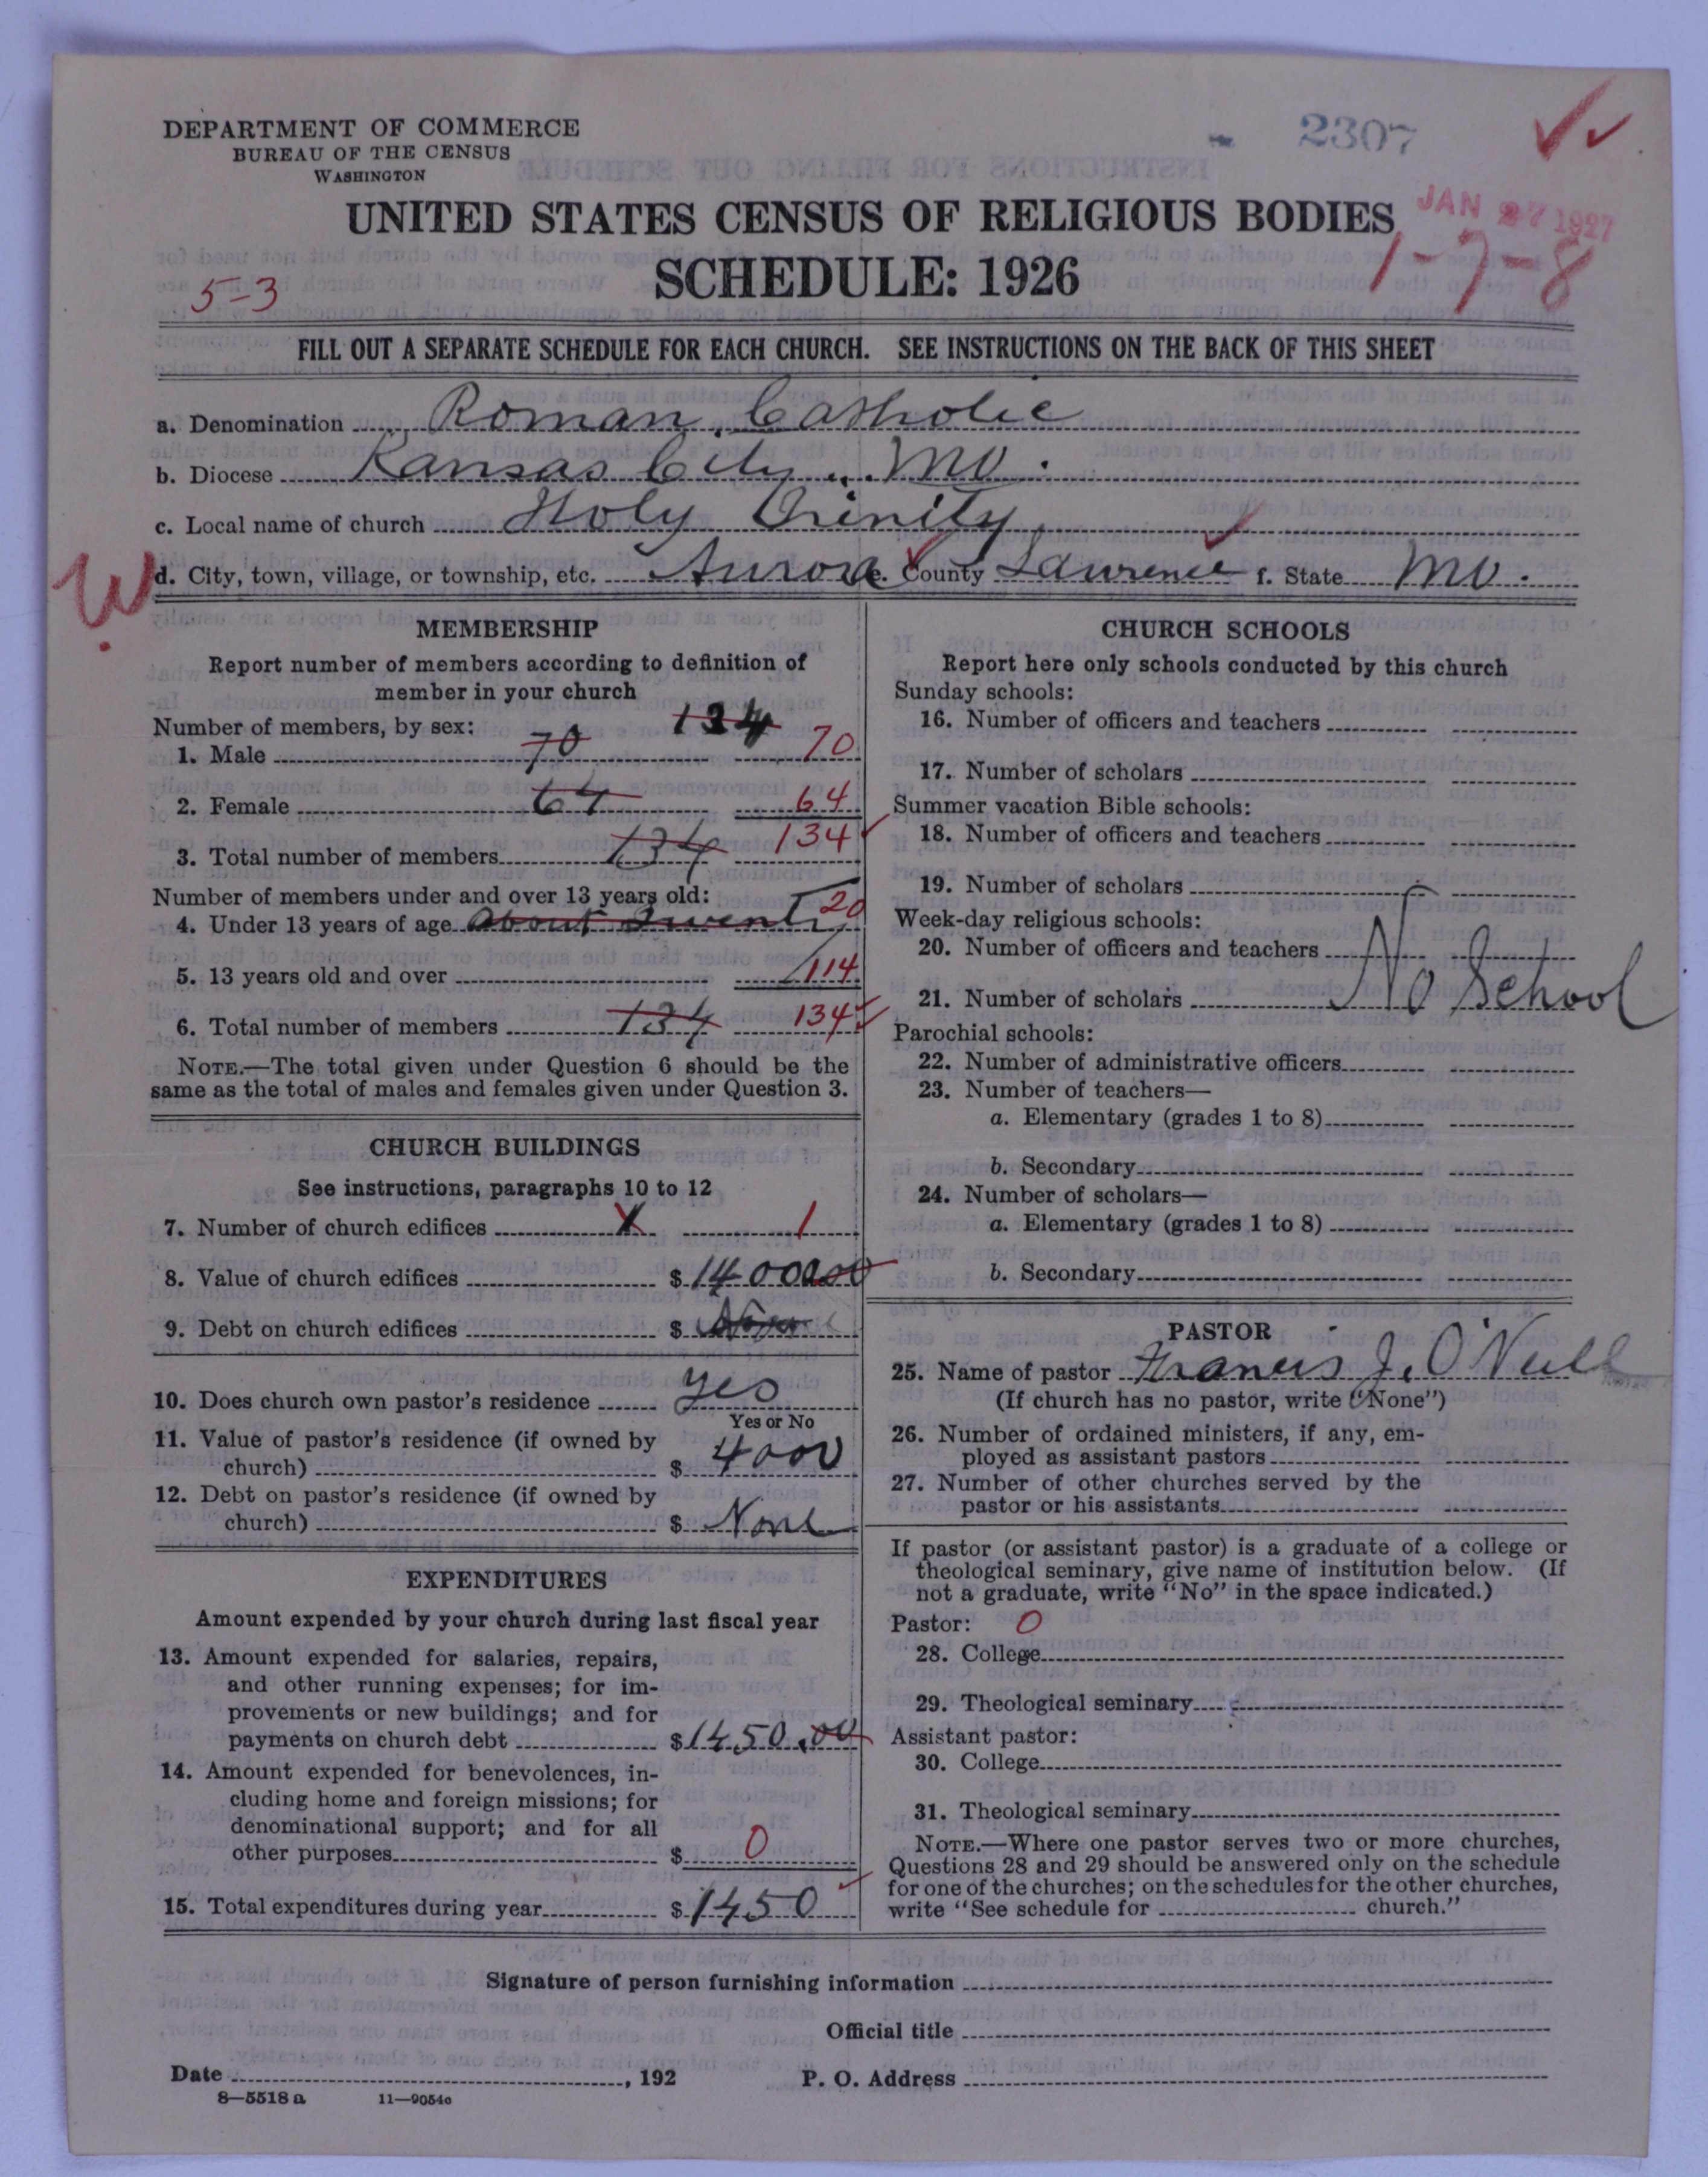 DEPARTMENT OF COMMERCE
BUREAU OF THE CENSUS
WASHINGTON
2307
UNITED STATES CENSUS OF RELIGIOUS BODIES
JAN 27 1927
SCHEDULE: 1926
1-7-8
5-3
FILL OUT A SEPARATE SCHEDULE FOR EACH CHURCH. SEE INSTRUCTIONS ON THE BACK OF THIS SHEET
a. Denomination Roman Catholic
b. Diocese Kansas City Mo.
c. Local name of church Holy Trinity
W d. City, town, village, or township, etc. Aurora e. County Lawrence f. State Mo.
MEMBERSHIP
Report number of members according to definition of
member in your church
Number of members, by sex: 134
1. Male 70 70
2. Female 64 64
3. Total number of members 134 134
Number of members under and over 13 years old:
4. Under 13 years of age about Twenty 20
5. 13 years old and over 114
6. Total number of members 134 134
NOTE.—The total given under Question 6 should be the
same as the total of males and females given under Question 3.
CHURCH BUILDINGS
See instructions, paragraphs 10 to 12
7. Number of church edifices 1 1
8. Value of church edifices $14000.00
9. Debt on church edifices $ None
10. Does church own pastor's residence Yes
Yes or No
11. Value of pastor's residence (if owned by
church) $ 4000
12. Debt on pastor's residence (if owned by
church) $ None
EXPENDITURES
Amount expended by your church during last fiscal year
13. Amount expended for salaries, repairs,
and other running expenses; for im-
provements or new buildings; and for
payments on church debt $1450.00
14. Amount expended for benevolences, in-
cluding home and foreign missions; for
denominational support; and for all
other purposes $ 0
15. Total expenditures during year $1450
CHURCH SCHOOLS
Report here only schools conducted by this church
Sunday schools:
16. Number of officers and teachers
17. Number of scholars
Summer vacation Bible schools:
18. Number of officers and teachers
19. Number of scholars
Week-day religious schools:
20. Number of officers and teachers
No School
21. Number of scholars
Parochial schools:
22. Number of administrative officers
23. Number of teachers—
a. Elementary (grades 1 to 8)
b. Secondary
24. Number of scholars—
a. Elementary (grades 1 to 8)
b. Secondary
PASTOR
25. Name of pastor Francis J. O'Neill
(If church has no pastor, write "None")
26. Number of ordained ministers, if any, em-
ployed as assistant pastors
27. Number of other churches served by the
pastor or his assistants
If pastor (or assistant pastor) is a graduate of a college or
theological seminary, give name of institution below. (If
not a graduate, write "No" in the space indicated.)
Pastor: 0
28. College
29. Theological seminary
Assistant pastor:
30. College
31. Theological seminary
NOTE.—Where one pastor serves two or more churches,
Questions 28 and 29 should be answered only on the schedule
for one of the churches; on the schedules for the other churches,
write "See schedule for church."
Signature of person furnishing information
Official title
Date , 192 P. O. Address
8—5518 a 11—9054c